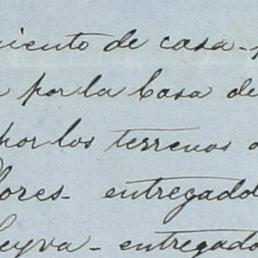 miento de casa-
por la Casa de
por los terrenos
lores- entregado
Leyva- entregado